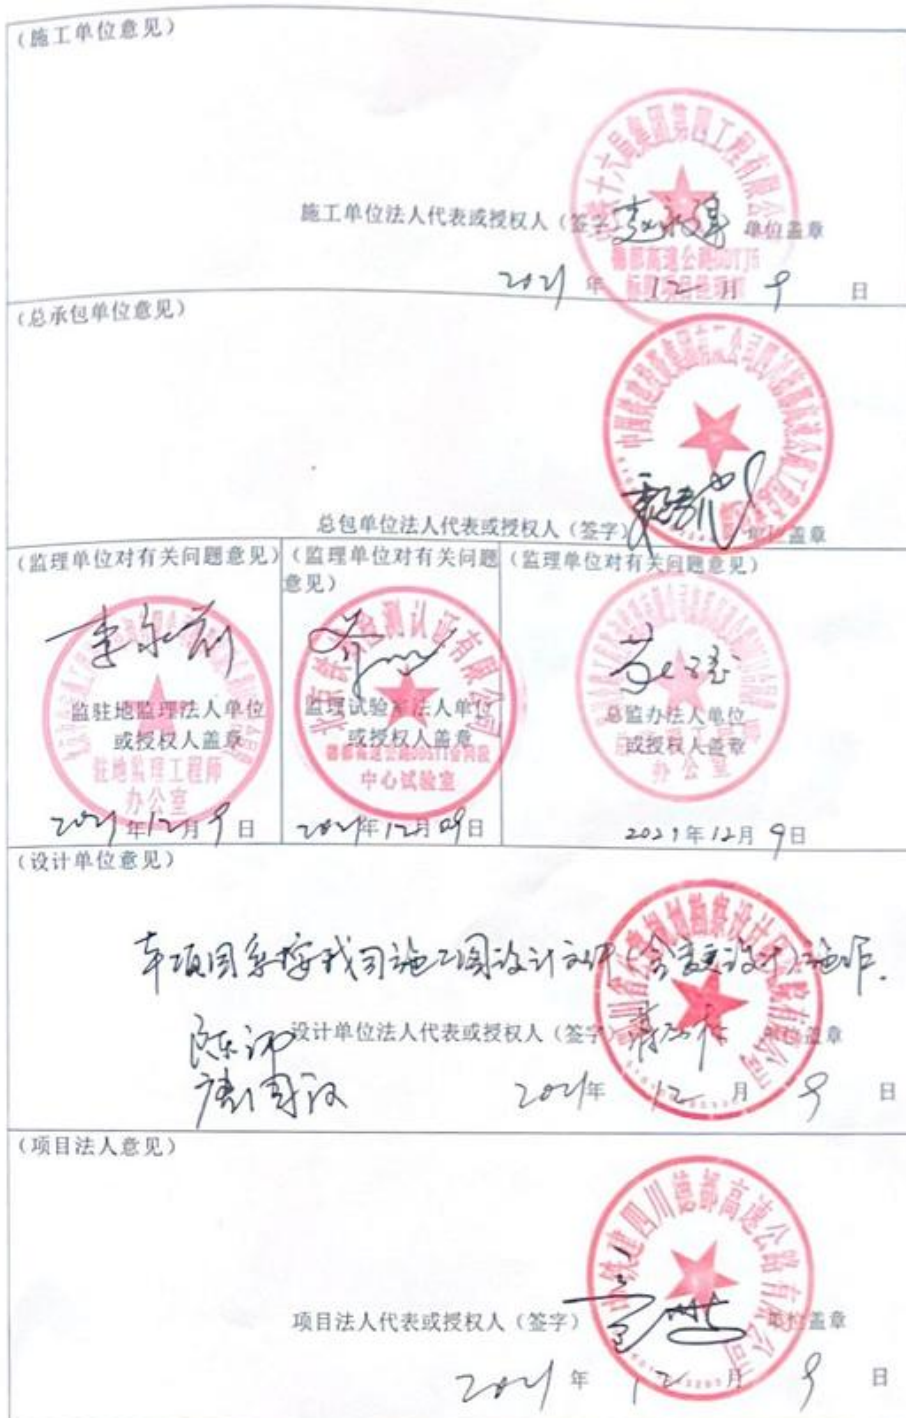 （施工单位意见）
十六局集团第四工程有限公司
施工单位法人代表或授权人（签字） 单位盖章
德都高速公路
2021 年 12 月 9 日
（总承包单位意见）
总包单位法人代表或授权人（签字） 单位盖章
（监理单位对有关问题意见）
监驻地监理法人单位
或授权人盖章
驻地监理工程师
办公室
2021年12月9日
（监理单位对有关问题
意见）
检测认证有限公司
监理试验室法人单位
或授权人盖章
中心试验室
2021年12月09日
（监理单位对有关问题意见）
总监办法人单位
或授权人盖章
办公室
2021年12月9日
（设计单位意见）
本项目系按我司施工图设计文件（含变更设计）施作.
四川省公路规划勘察设计研究院有限公司
设计单位法人代表或授权人（签字） 单位盖章
2021年 12 月 9 日
（项目法人意见）
中铁建四川德都高速公路有限公司
项目法人代表或授权人（签字） 单位盖章
2021 年 12 月 9 日